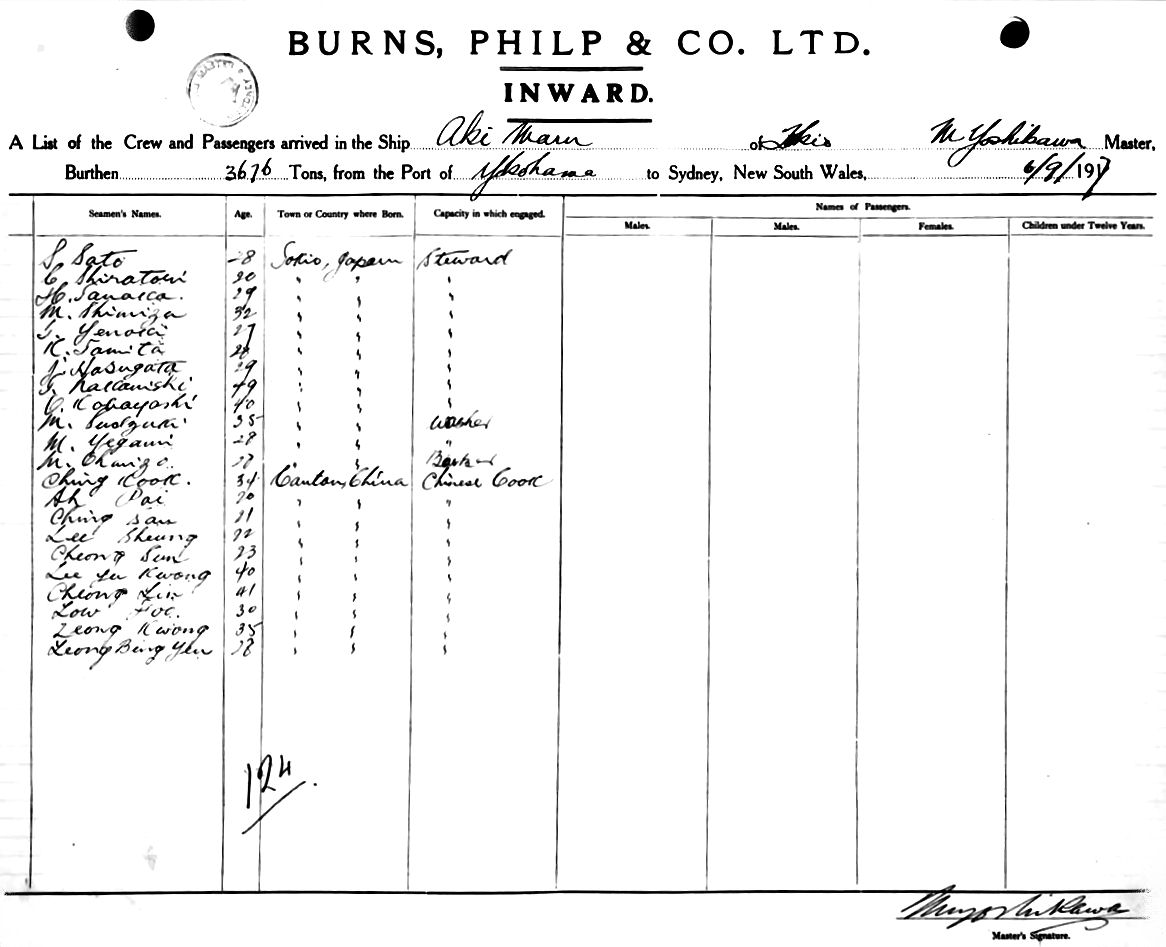 BURNS, PHILP & CO. LTD.
INWARD.
MASTER
A List of the Crew and Passengers arrived in the Ship Aki Maru of Tokio M Yoshikawa Master,
Burthen 3676 Tons, from the Port of Yokohama to Sydney, New South Wales, 6/9/1917
Seamen's Names. Age. Town or Country where Born. Capacity in which engaged. Names of Passengers.
Males. Males. Females. Children under Twelve Years.
S. Sato 28 Tokio, Japan Steward
C. Shiratori 20 " " "
H. Tanaka. 29 " " "
M. Shimiza 32 " " "
27 " " "
K. Tamita " " "
Hasugata 29 " " "
Nakanishi 49 " " "
Kobayashi 40 " " "
M. 35 " " Washer
M. Yegami 28 " " "
M. " "
Ching Kook. 34 Canton, China Chinese Cook
Ah Pai 20 " " "
Ching San 21 " " "
Lee Sheung 22 " " "
Cheong Sun 23 " " "
Lee Yu Kwong 40 " " "
Cheong Lin 41 " " "
Low 30 " " "
Leong Kwong 35 " " "
Leong Bing Yen 28 " " "
124
M Yoshikawa
Master's Signature.